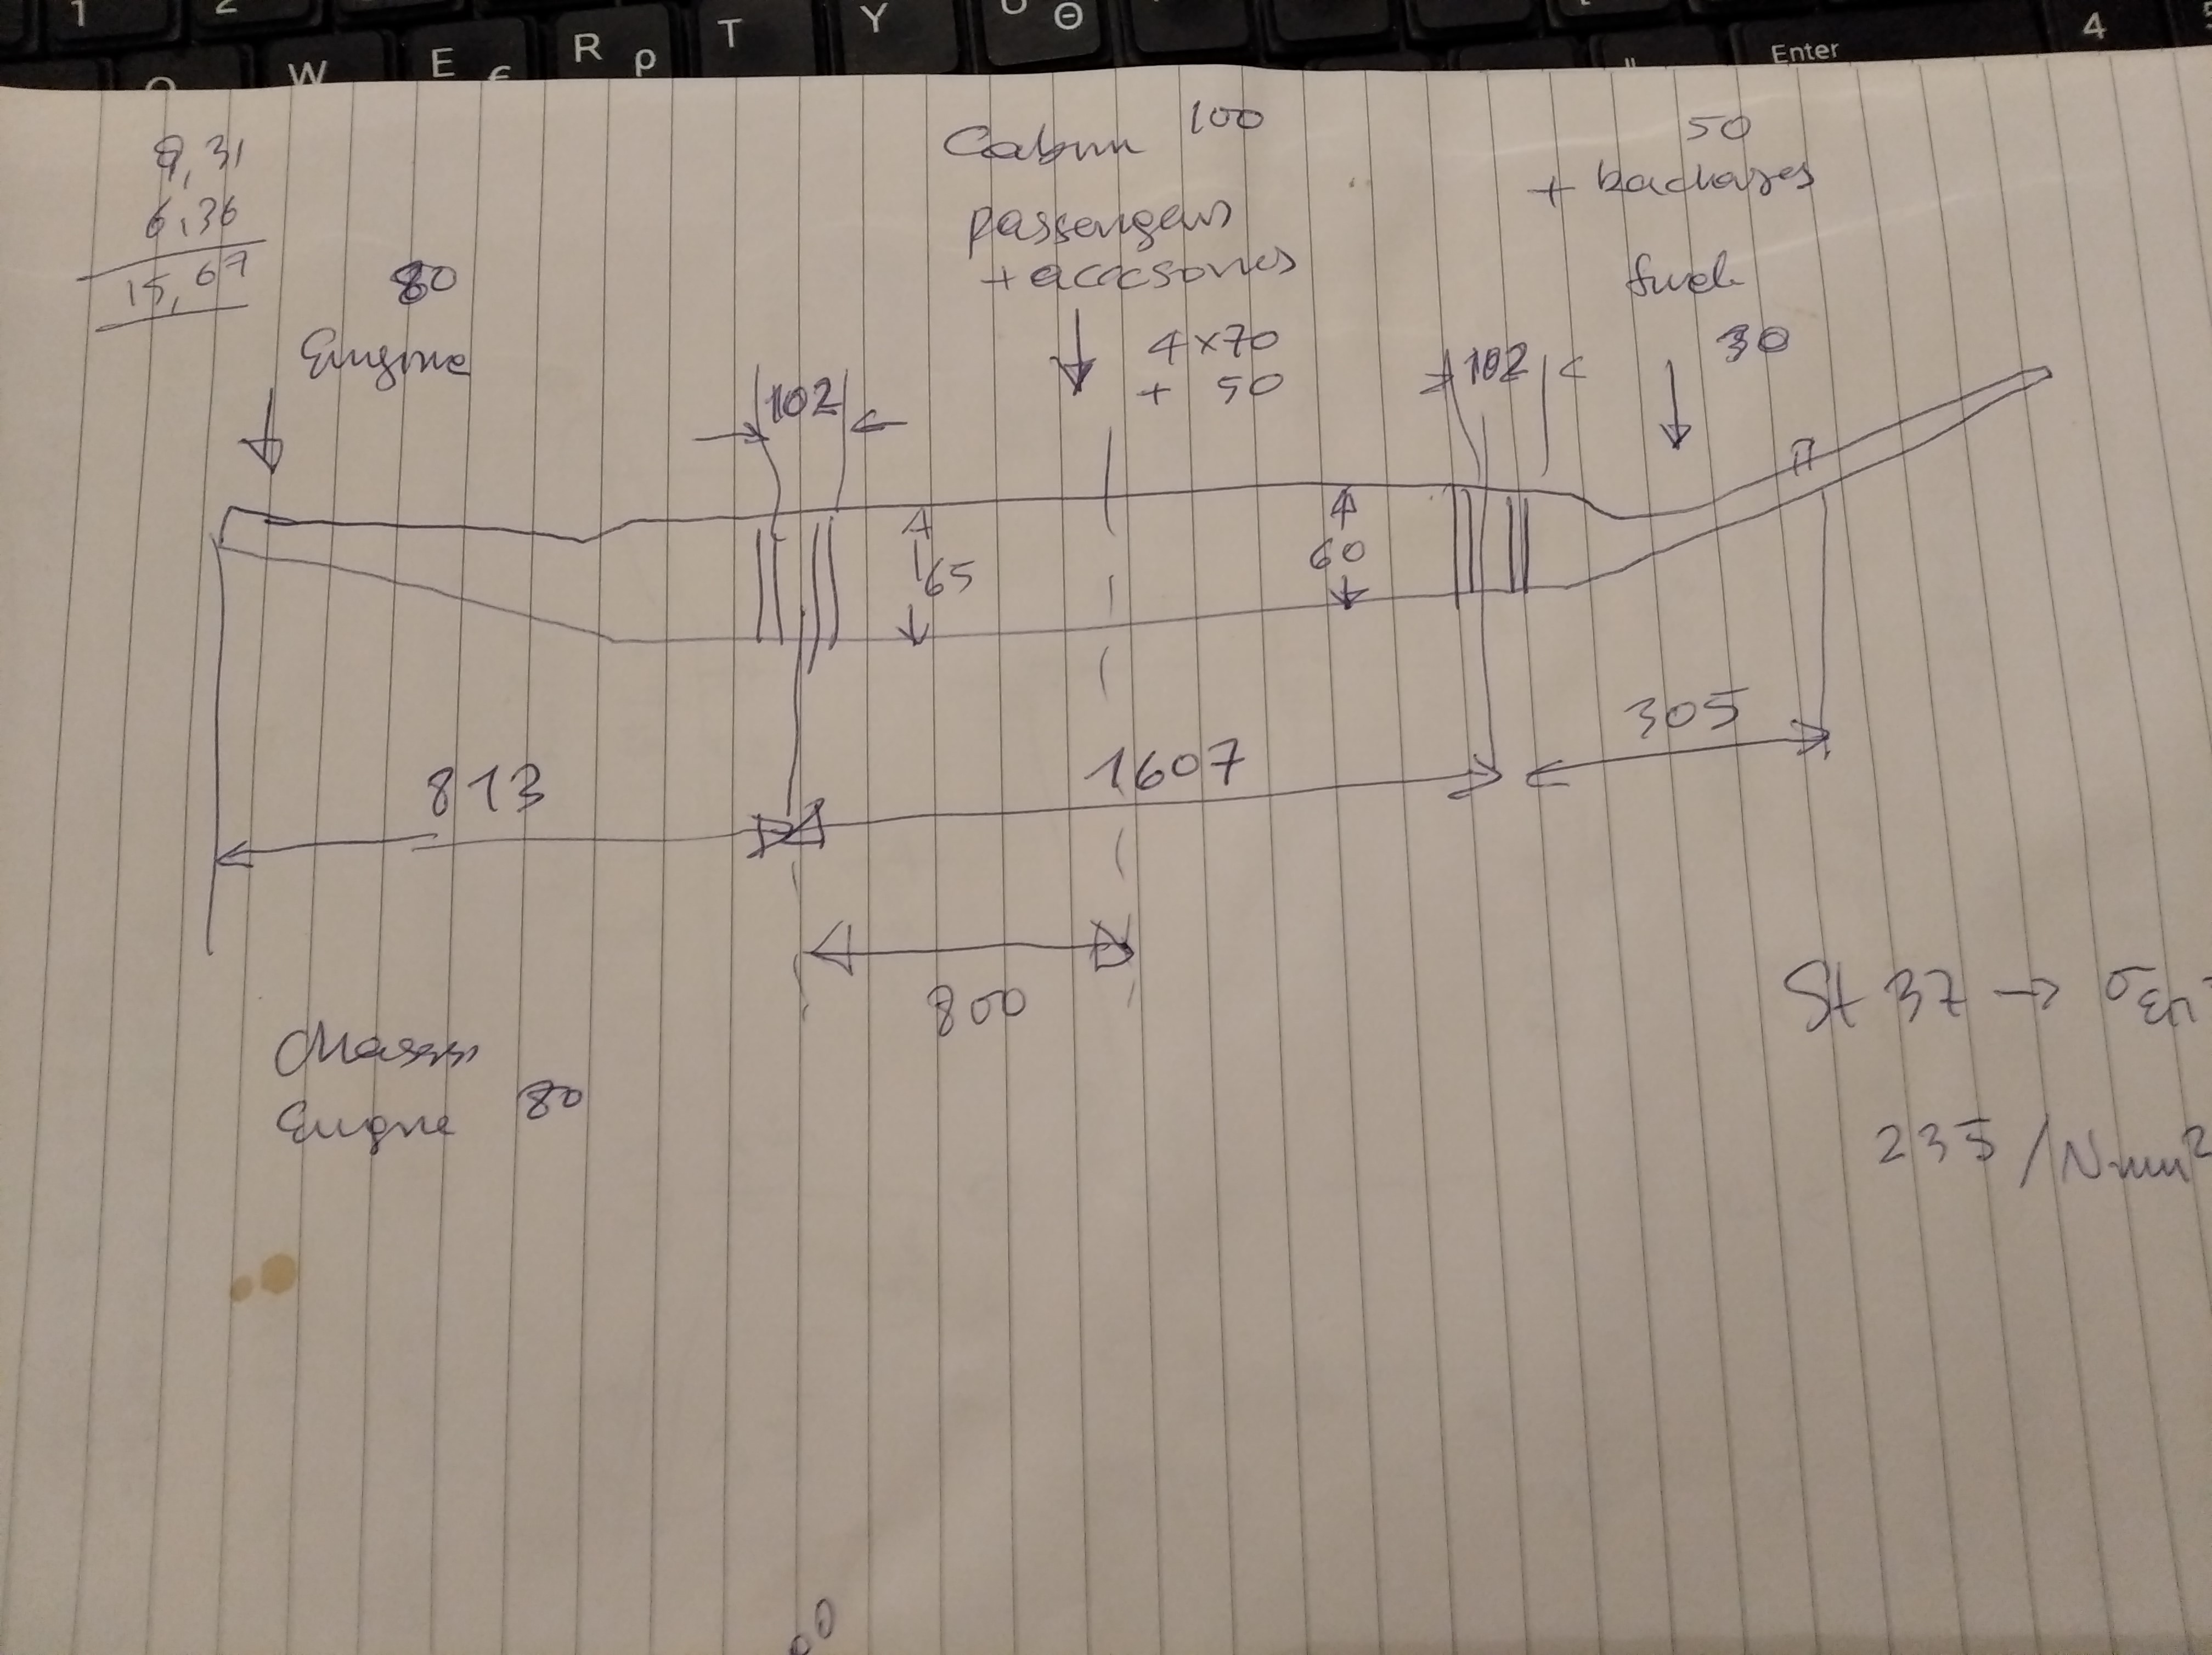 1 2
W E € R ρ T Y U Θ Enter 4
9,31
6,36
15,67
80
Engine
Cabin 100
passengers
+ accesories
4 x 70
+ 50
50
+ backages
fuel
30
102
102
65
60
813
1607
305
800
Chassis
Engine 80
St 37 → σ
235 /Nmm²
00